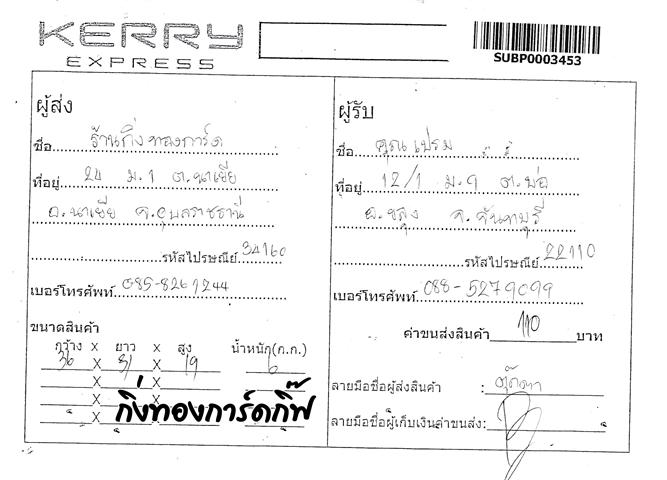 KERRY
EXPRESS
SUBP0003453
ผู้ส่ง
ชื่อ ร้านกิ่งทองการ์ด
ที่อยู่ 24 ม.1 ต.นาเยีย
อ.นาเยีย จ.อุบลราชธานี
รหัสไปรษณีย์ 34160
เบอร์โทรศัพท์ 085-8261244
ขนาดสินค้า
กว้าง X ยาว X สูง น้ำหนัก(ก.ก.)
36 X 31 X 19 6
X X
X X
X X
กิ่งทองการ์ดกิ๊ฟ
ผู้รับ
ชื่อ คุณเปรม
ที่อยู่ 12/1 ม.9 ต.บ่อ
อ.ขลุง จ.จันทบุรี
รหัสไปรษณีย์ 22110
เบอร์โทรศัพท์ 088-5279099
ค่าขนส่งสินค้า 110 บาท
ลายมือชื่อผู้ส่งสินค้า : ตุ๊กตา
ลายมือชื่อผู้เก็บเงินค่าขนส่ง: